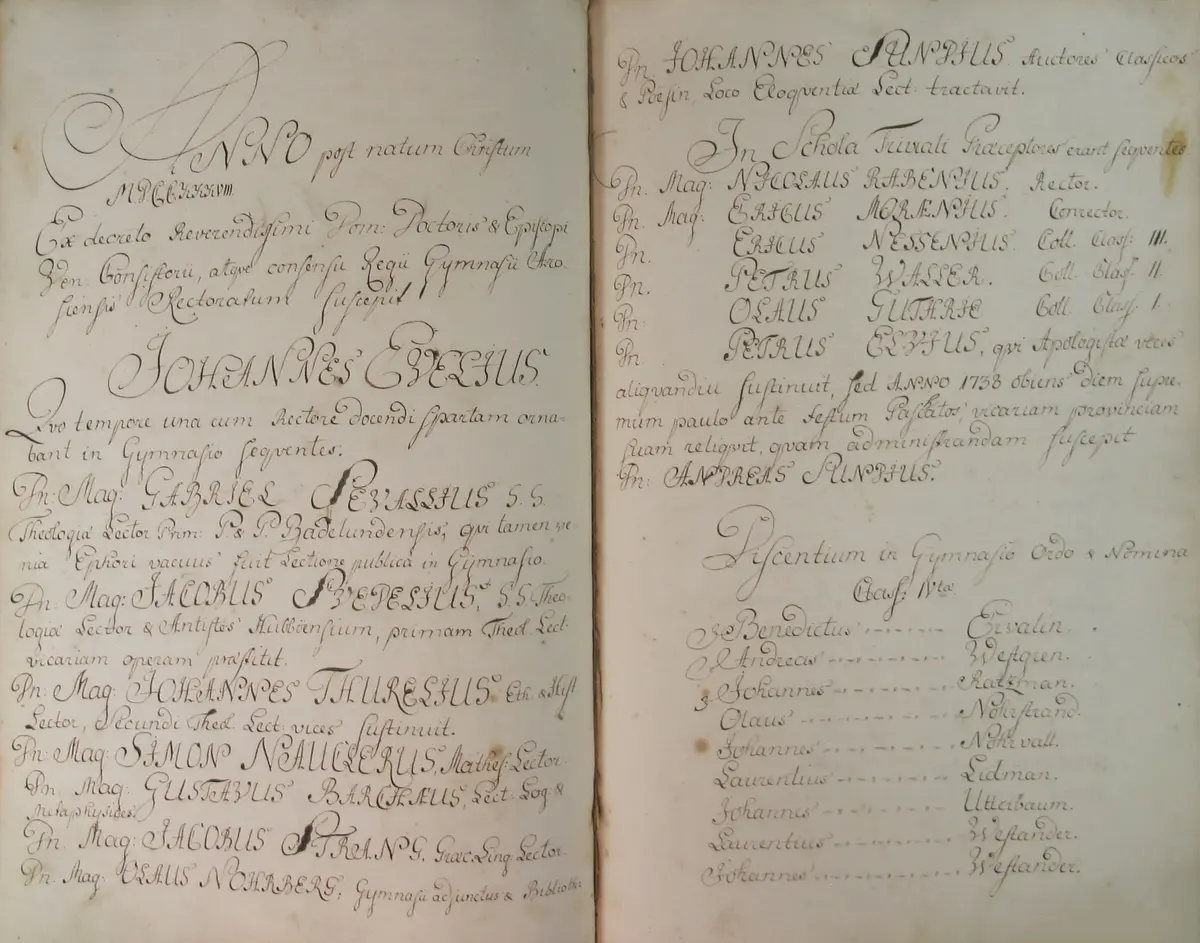 ANNO post natum Christum
MDCCXXXVIII.
Ex decreto Reverendissimi Dom: Doctoris & Episcopi
Ven. Consistorii, atqve consensu Regii Gymnasii Aro-
siensis Rectoratum suscepit
JOHANNES EVELIUS.
Qvo tempore una cum Rectore docendi spartam orna-
bant in Gymnasio seqventes.
Dn: Mag: GABRIEL SEVALLIUS S. S.
Theologiæ Lector Prim: P. & P. Badelundensis, qvi tamen ve-
nia Ephori vacuus fuit Lectione publica in Gymnasio.
Dn. Mag: JACOBUS SVEDELIUS, S. S. Theo-
logiæ Lector & Antistes Hubboënsium, primam Theol. Lect:
vicariam operam præstitit.
Dn: Mag: JOHANNES THURELIUS Eth. & Hist
Lector, Secundi Theol. Lect: vices sustinuit.
Dn: Mag: SIMON NAUCLERUS, Mathes: Lector
Dn. Mag: GUSTAVUS BARCHÆUS, Lect: Log: &
Metaphysices.
Dn. Mag: JACOBUS STRANG. Græc. Ling. Lector.
Dn. Mag: OLAUS NOHRBERG, Gymnasii adjunctus & Biblioth:
Dn. JOHANNES SUNDIUS. Auctores Classicos
& Poesin, Loco Eloqventiæ Lect: tractavit.
In Schola Triviali Præceptores erant seqventes
Dn. Mag: NICOLAUS RABENIUS. Rector.
Dn. Mag: ERICUS MORÆNIUS. Conrector.
Dn. ERICUS NESSENIUS. Coll. Class: III.
Dn. PETRUS WALLER. Coll. Class. II.
Dn: OLAUS GUTHRIE Coll. Class. I.
Dn PETRUS ELVIUS, qvi Apologistæ vices
aliqvandiu sustinuit, sed ANNO 1738 obiens diem supre-
mum paulo ante Festum Paschatos, vicariam provinciam
suam reliqvit, qvam administrandam suscepit
Dn: ANDREAS SUNDIUS.
Discentium in Gymnasio Ordo & Nomina
Class: IVta
Benedictus Ervalin.
Andreas Westgren.
Johannes Ratzman.
Olaus Nohrstrand.
Johannes Nohrvall.
Laurentius Lidman.
Johannes Utterbaum.
Laurentius Westander.
Johannes Westander.